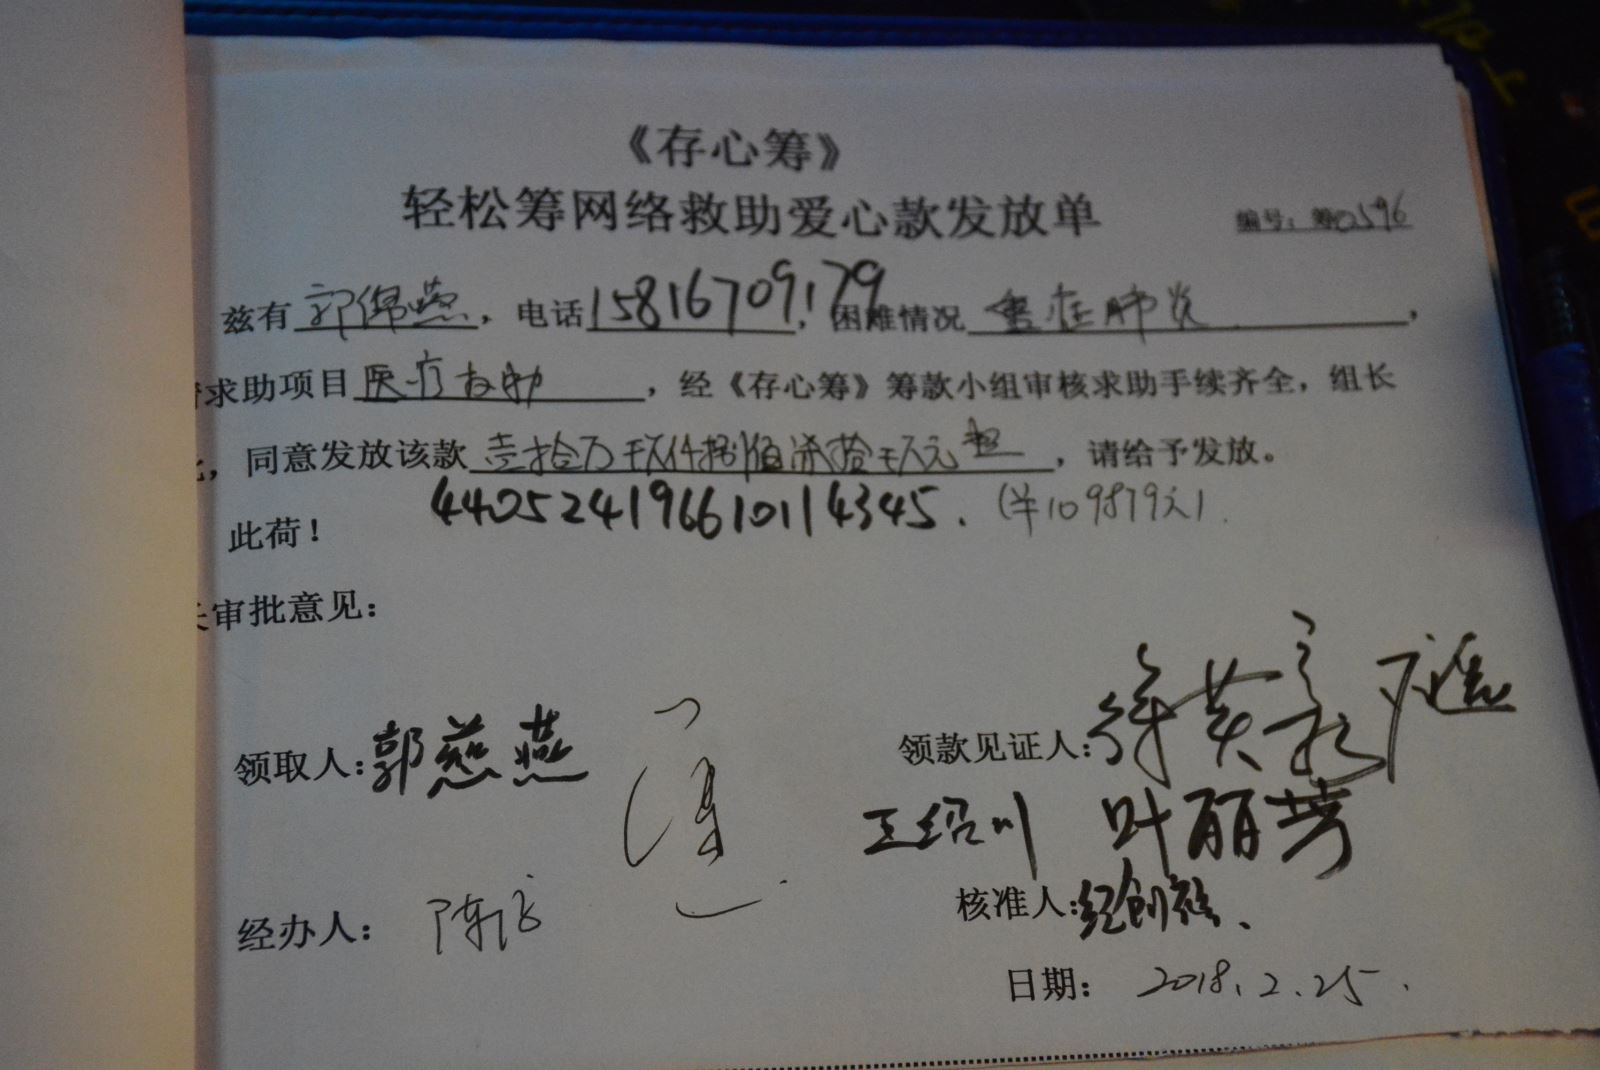 《存心筹》
轻松筹网络救助爱心款发放单
编号：筹0596
兹有郭绵燕，电话15816709179，困难情况重症肺炎，
求助项目医疗救助，经《存心筹》筹款小组审核求助手续齐全，组长
，同意发放该款壹拾万玖仟捌佰柒拾玖元，请给予发放。
440524196610114345.（¥109879元）.
此荷！
审批意见：
领取人：郭慈燕
领款见证人：
王绍川 叶丽芳
经办人：陈
核准人：
日期：2018.2.25.